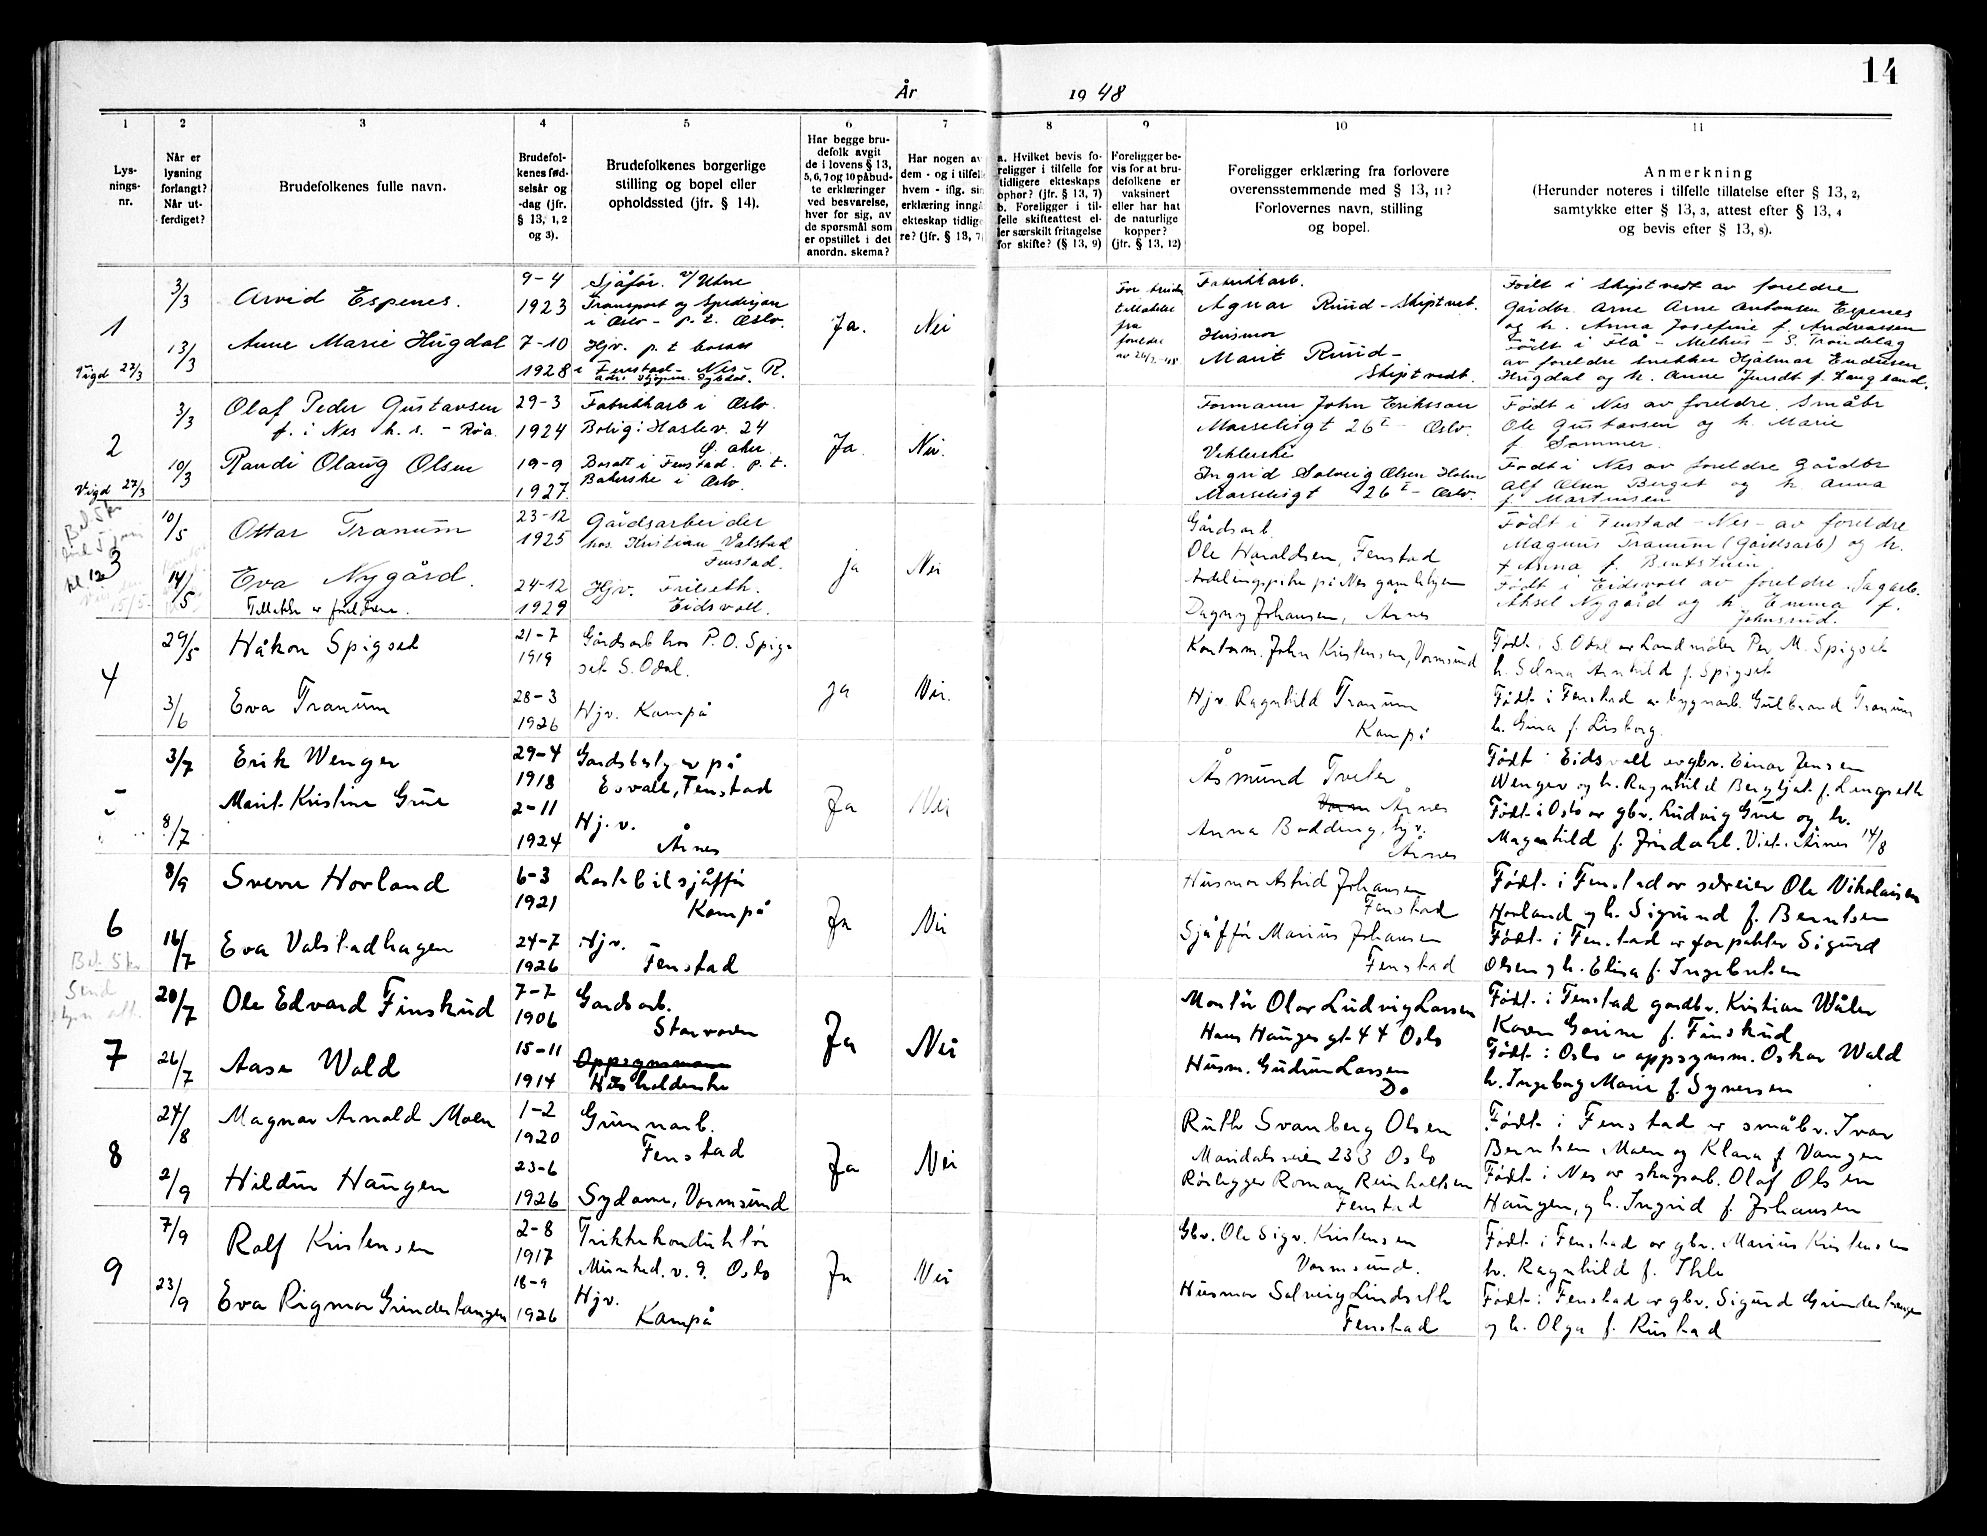 14
År 1948
1 2 3 4 5 6 7 8 9 10 11
Lysnings-
nr.
Når er
lysning
forlangt?
Når ut-
ferdiget?
Brudefolkenes fulle navn.
Brudefol-
kenes fød-
selsår og
-dag (jfr.
§ 13, 1, 2
og 3).
Brudefolkenes borgerlige
stilling og bopel eller
opholdssted (jfr. § 14).
Har begge bru-
defolk avgit
de i lovens § 13,
5, 6, 7 og 10 påbud-
te erklæringer
ved besvarelse,
hver for sig, av
de spørsmål som
er opstillet i det
anordn. skema?
Har nogen av
dem - og i tilfelle
hvem - iflg. sin
erklæring inngå
ekteskap tidlige
re? (jfr. § 13, 7)
a. Hvilket bevis fo-
religger i tilfelle for
tidligere ekteskaps
ophør? (jfr. § 13, 7)
b. Foreligger i til-
felle skifteattest el-
ler særskilt fritagelse
for skifte? (§ 13, 9)
Foreligger be-
vis for at bru-
defolkene er
vaksinert
eller har hat
de naturlige
kopper?
(jfr. § 13, 12)
Foreligger erklæring fra forlovere
overensstemmende med § 13, 11?
Forlovernes navn, stilling
og bopel.
Anmerkning
(Herunder noteres i tilfelle tillatelse efter § 13, 2,
samtykke efter § 13, 3, attest efter § 13, 4
og bevis efter § 13, 8).
1
Vigd 27/3
3/3
13/3
Arvid Espenes.
Anne Marie Hugdal
9-4
1923
7-10
1928
Sjåfør. v/ Utne
Transport og Spedisjon
i Oslo - p.t. Oslo.
Hjv. p.t. bosatt
i Fenstad - Nes - R.
Ja.
Nei
tillatelse
fra
foreldre
Fabrikkarb.
Agnar Ruud - Skiptvet.
Husmor
Marit Ruud -
Skiptvedt.
Født i Skiptvedt av foreldre
Gårdbr. Arne Arne Antonsen Espenes
og h. Anna Josefine f. Andreassen
Født i Flå - Melhus - S. Trøndelag
av foreldre snekker Hjalmar Endresen
Hugdal og h. Anne Jendt f. Haugland.
2
Vigd 27/3
3/3
10/3
Olaf Peder Gustavsen
f. i Nes h. s. - Røa.
Randi Olaug Olsen
29-3
1924
19-9
1927
Fabrikkarb i Oslo.
Bolig: Haslev. 24
Ø. aker.
Bosatt i Fenstad. p.t.
Bakerske i Oslo.
Ja
Nei.
Formann John Eriksson
Marseligt 26 I - Oslo.
Ingrid Solveig Olsen Holm
Marseligt 26 I - Oslo.
Født i Nes av foreldre. Småbr
Ole Gustavsen og h. Marie
f. Sommer.
Født i Nes av foreldre Gårdbr
Alf Olsen Berget og h. Anna
f. Martinsen
3
kl 12
10/5
14/5
Ottar Tranum
Eva Nygård.
23-12
1925
24-12
1929
Gårdsarbeider
hos Kristian Valstad
Fenstad.
Hjv. Frilseth.
Eidsvoll.
ja
Nei
Gårdsarb
Ole Haraldsen, Fenstad
Avdelingspike på Nes gamlehjem
Dagny Johansen, Årnes
Født i Fenstad - Nes - av foreldre
Magnus Tranum (Gårdsarb) og h.
Anna f. Bentstuen
Født i Eidsvoll av foreldre Sagarb.
Aksel Nygård og h. Emma f.
Johnsrud.
4
29/5
3/6
Håkon Spigset
Eva Tranum
21-7
1919
28-3
1926
Gårdsarb hos P. O. Spig-
set S. Odal.
Hjv. Kampå
ja
Nei.
Kontorm. John Kristensen, Vormsund
Hjv. Ragnhild Tranum
Kampå
Født i S. Odal av Landmåler Per M. Spigset
h. Selma Arnhild f. Spigset
Født i Fenstad av bygnarb. Gulbrand Tranum
h. Gina f. Lisborg.
5
3/7
8/7
Erik Wenger
Marit Kristine Grue
29-4
1918
2-11
1924
Gardsbestyrer på
Esvall, Fenstad
Hj. v.
Årnes
Ja
Nei
Åsmund Tveter
Årnes
Anna Bødding, hjv.
Årnes
Født i Eidsvoll av gbr. Einar Jensen
Wenger og h. Ragnhild Bergljot f. Lengseth
Født i Oslo av gbr. Ludvig Grue og h.
Magnhild f. Jøndahl. Viet i Årnes 14/8
6
8/9
16/7
Sverre Horland
Eva Valstadhagen
6-3
1921
24-7
1926
Lastebilsjåffør
Kampå
Hjv.
Fenstad
Ja
Nei
Husmor Astrid Johansen
Fenstad
Sjåffør Marius Johansen
Fenstad
Født i Fenstad av selveier Ole Nikolaisen
Horland og h. Sigrund f. Berntsen
Født i Fenstad av forpakter Sigurd
Olsen og h. Elisa f. Ingebretsen
Bet. 5 kr
Send
7
20/7
26/7
Ole Edvard Finskud
Aase Wold
7-7
1906
15-11
1914
Gardsarb.
Storvoren
Oppsynsmann
Husholderske
Ja
Nei
Montør Olav Ludvig Larsen
Hans Hauges gt. 44 Oslo
Husm. Gudrun Larsen
Do
Født i Fenstad gardbr. Kristian Wåler
Karen Gorine f. Finskud
Født i Oslo av oppsynsm. Oskar Wold
h. Ingeborg Marie f. Syversen
8
24/8
2/9
Magnar Arnold Moen
Hildur Haugen
1-2
1920
23-6
1926
Grunnarb.
Fenstad
Sydame, Vormsund
Ja
Nei
Ruth Svanberg Olsen
Maridalsveien 233 Oslo
Rørlegger Roman Reinholtsen
Fenstad
Født i Fenstad av småbr. Ivar
Berntsen Moen og Klara f. Vangen
Født i Nes av skogsarb. Olaf Olsen
Haugen, og h. Ingrid f. Johansen
9
7/9
23/9
Rolf Kristensen
Eva Rigmor Grinderhaugen
2-8
1917
18-9
1926
Trikkekonduktør
Munked. v. 9. Oslo
Hjv.
Kampå
Ja
Nei
Gbr. Ole Sigv. Kristensen
Vormsund.
Husmor Solveig Lindseth
Fenstad
Født i Fenstad av gbr. Marius Kristensen
h. Ragnhild f. Ihle
Født i Fenstad av gbr. Sigurd Grinderhaugen
og h. Olga f. Rustad